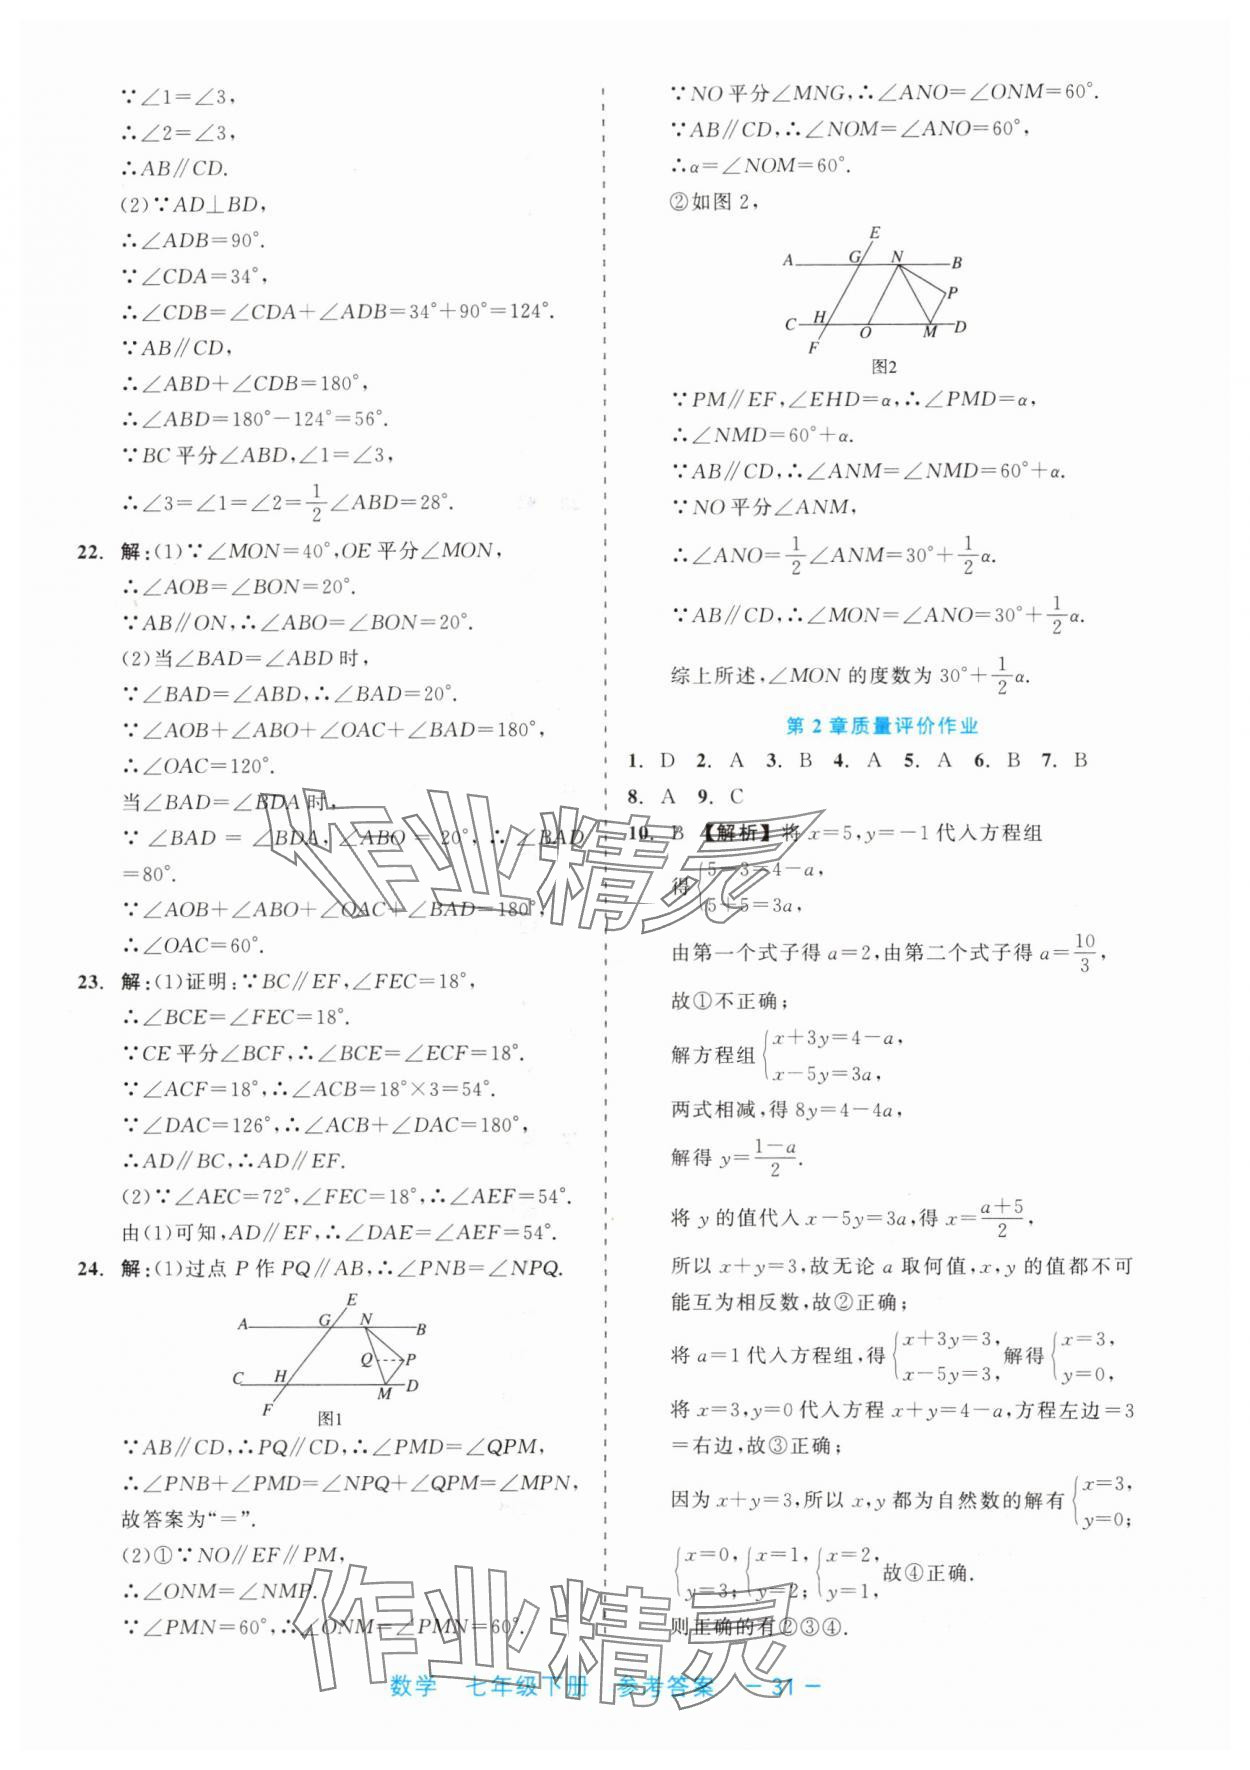 ∵∠1=∠3,
∴∠2=∠3,
∴AB∥CD.
(2)∵AD⊥BD,
∴∠ADB=90°.
∵∠CDA=34°,
∴∠CDB=∠CDA+∠ADB=34°+90°=124°.
∵AB∥CD,
∴∠ABD+∠CDB=180°,
∴∠ABD=180°-124°=56°.
∵BC平分∠ABD,∠1=∠3,
∴∠3=∠1=∠2=1/2∠ABD=28°.
22. 解:(1)∵∠MON=40°,OE平分∠MON,
∴∠AOB=∠BON=20°.
∵AB∥ON,∴∠ABO=∠BON=20°.
(2)当∠BAD=∠ABD时,
∵∠BAD=∠ABD,∴∠BAD=20°.
∵∠AOB+∠ABO+∠OAC+∠BAD=180°,
∴∠OAC=120°.
当∠BAD=∠BDA时,
∵∠BAD=∠BDA,∠ABO=20°,∴∠BAD
=80°.
∵∠AOB+∠ABO+∠OAC+∠BAD=180°,
∴∠OAC=60°.
23. 解:(1)证明:∵BC∥EF,∠FEC=18°,
∴∠BCE=∠FEC=18°.
∵CE平分∠BCF,∴∠BCE=∠ECF=18°.
∵∠ACF=18°,∴∠ACB=18°×3=54°.
∵∠DAC=126°,∴∠ACB+∠DAC=180°,
∴AD∥BC,∴AD∥EF.
(2)∵∠AEC=72°,∠FEC=18°,∴∠AEF=54°.
由(1)可知,AD∥EF,∴∠DAE=∠AEF=54°.
24. 解:(1)过点P作PQ∥AB,∴∠PNB=∠NPQ.
E
A G N B
Q P
C H M D
F
图1
∵AB∥CD,∴PQ∥CD,∴∠PMD=∠QPM,
∴∠PNB+∠PMD=∠NPQ+∠QPM=∠MPN,
故答案为“=”.
(2)①∵NO∥EF∥PM,
∴∠ONM=∠NMP.
∵∠PMN=60°,∴∠ONM=∠PMN=60°.
∵NO平分∠MNG,∴∠ANO=∠ONM=60°.
∵AB∥CD,∴∠NOM=∠ANO=60°,
∴α=∠NOM=60°.
②如图2,
E
A G N B
P
C H O M D
F
图2
∵PM∥EF,∠EHD=α,∴∠PMD=α,
∴∠NMD=60°+α.
∵AB∥CD,∴∠ANM=∠NMD=60°+α.
∵NO平分∠ANM,
∴∠ANO=1/2∠ANM=30°+1/2α.
∵AB∥CD,∴∠MON=∠ANO=30°+1/2α.
综上所述,∠MON的度数为30°+1/2α.
第2章质量评价作业
1. D 2. A 3. B 4. A 5. A 6. B 7. B
8. A 9. C
10. B 【解析】将x=5,y=-1代入方程组
得{5-3=4-a,
5+5=3a,
由第一个式子得a=2,由第二个式子得a=10/3,
故①不正确;
解方程组{x+3y=4-a,
x-5y=3a,
两式相减,得8y=4-4a,
解得y=(1-a)/2.
将y的值代入x-5y=3a,得x=(a+5)/2,
所以x+y=3,故无论a取何值,x,y的值都不可
能互为相反数,故②正确;
将a=1代入方程组,得{x+3y=3, x-5y=3, 解得{x=3, y=0,
将x=3,y=0代入方程x+y=4-a,方程左边=3
=右边,故③正确;
因为x+y=3,所以x,y都为自然数的解有{x=3, y=0;
{x=0, y=3; {x=1, y=2; {x=2, y=1, 故④正确.
则正确的有②③④.
数学 七年级下册 参考答案 -31-
作业精灵
作业精灵